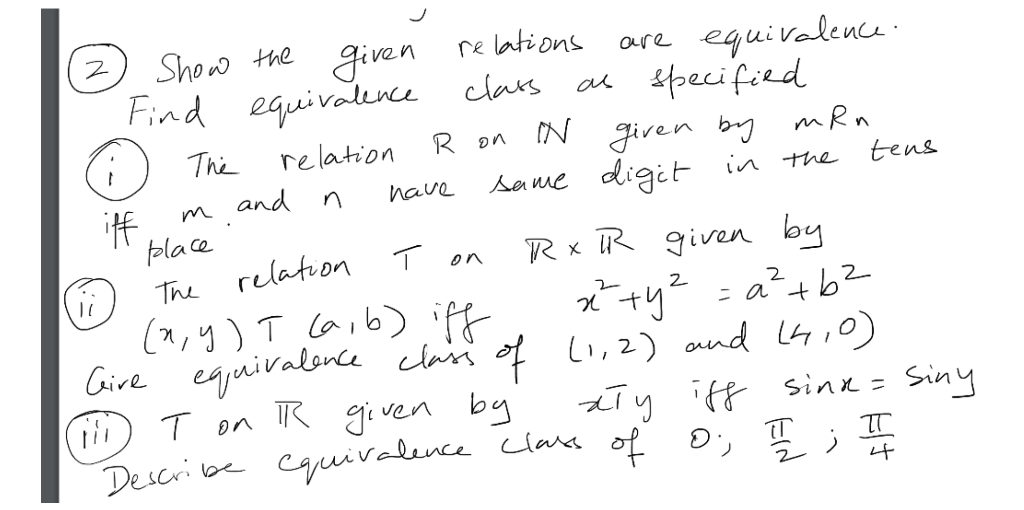 ② Show the given relations are equivalence.
Find equivalence class as specified
(i) The relation R on ℕ given by mRn
iff m and n have same digit in the tens
place.
(ii) The relation T on ℝ x ℝ given by
(x,y) T (a,b) iff x²+y² = a²+b²
Give equivalence class of (1,2) and (4,0)
(iii) T on ℝ given by xTy iff sinx = siny
Describe equivalence class of 0; π/2 ; π/4